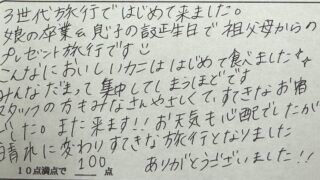 3世代旅行ではじめて来ました。
娘の卒業&息子の誕生日で祖父母からの
プレゼント旅行です
こんなにおいしいカニははじめて食べました
みんなだまって集中してしまうほどです
スタッフの方もみなさんやさしくて、すてきなお宿
でした。また来ます!!お天気も心配でしたが
晴れに変わりすてきな旅行となりました
10点満点で 100 点 ありがとうございました!!